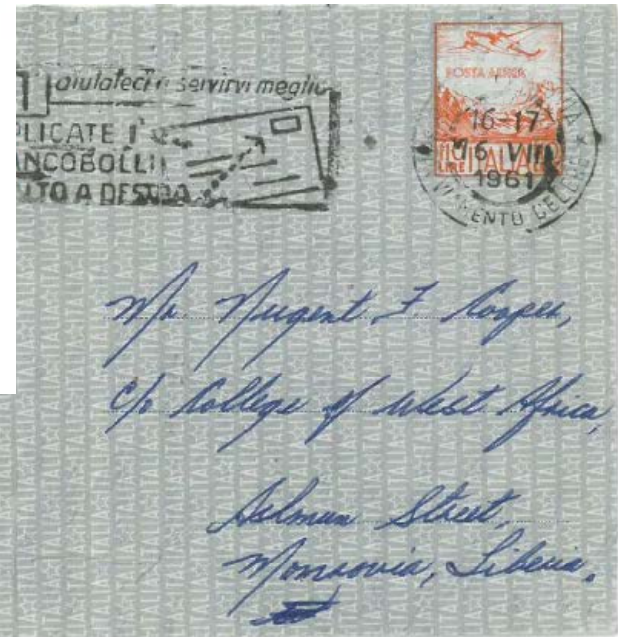 aiutateci a servirvi meglio
PLICATE I
ANCOBOLLI
LTO A DESTRA
POSTA AEREA
110
LIRE ITALIA
16-17
1961
Mr. Nugent F. Cooper,
c/o College of West Africa,
Ashmun Street,
Monrovia, Liberia.